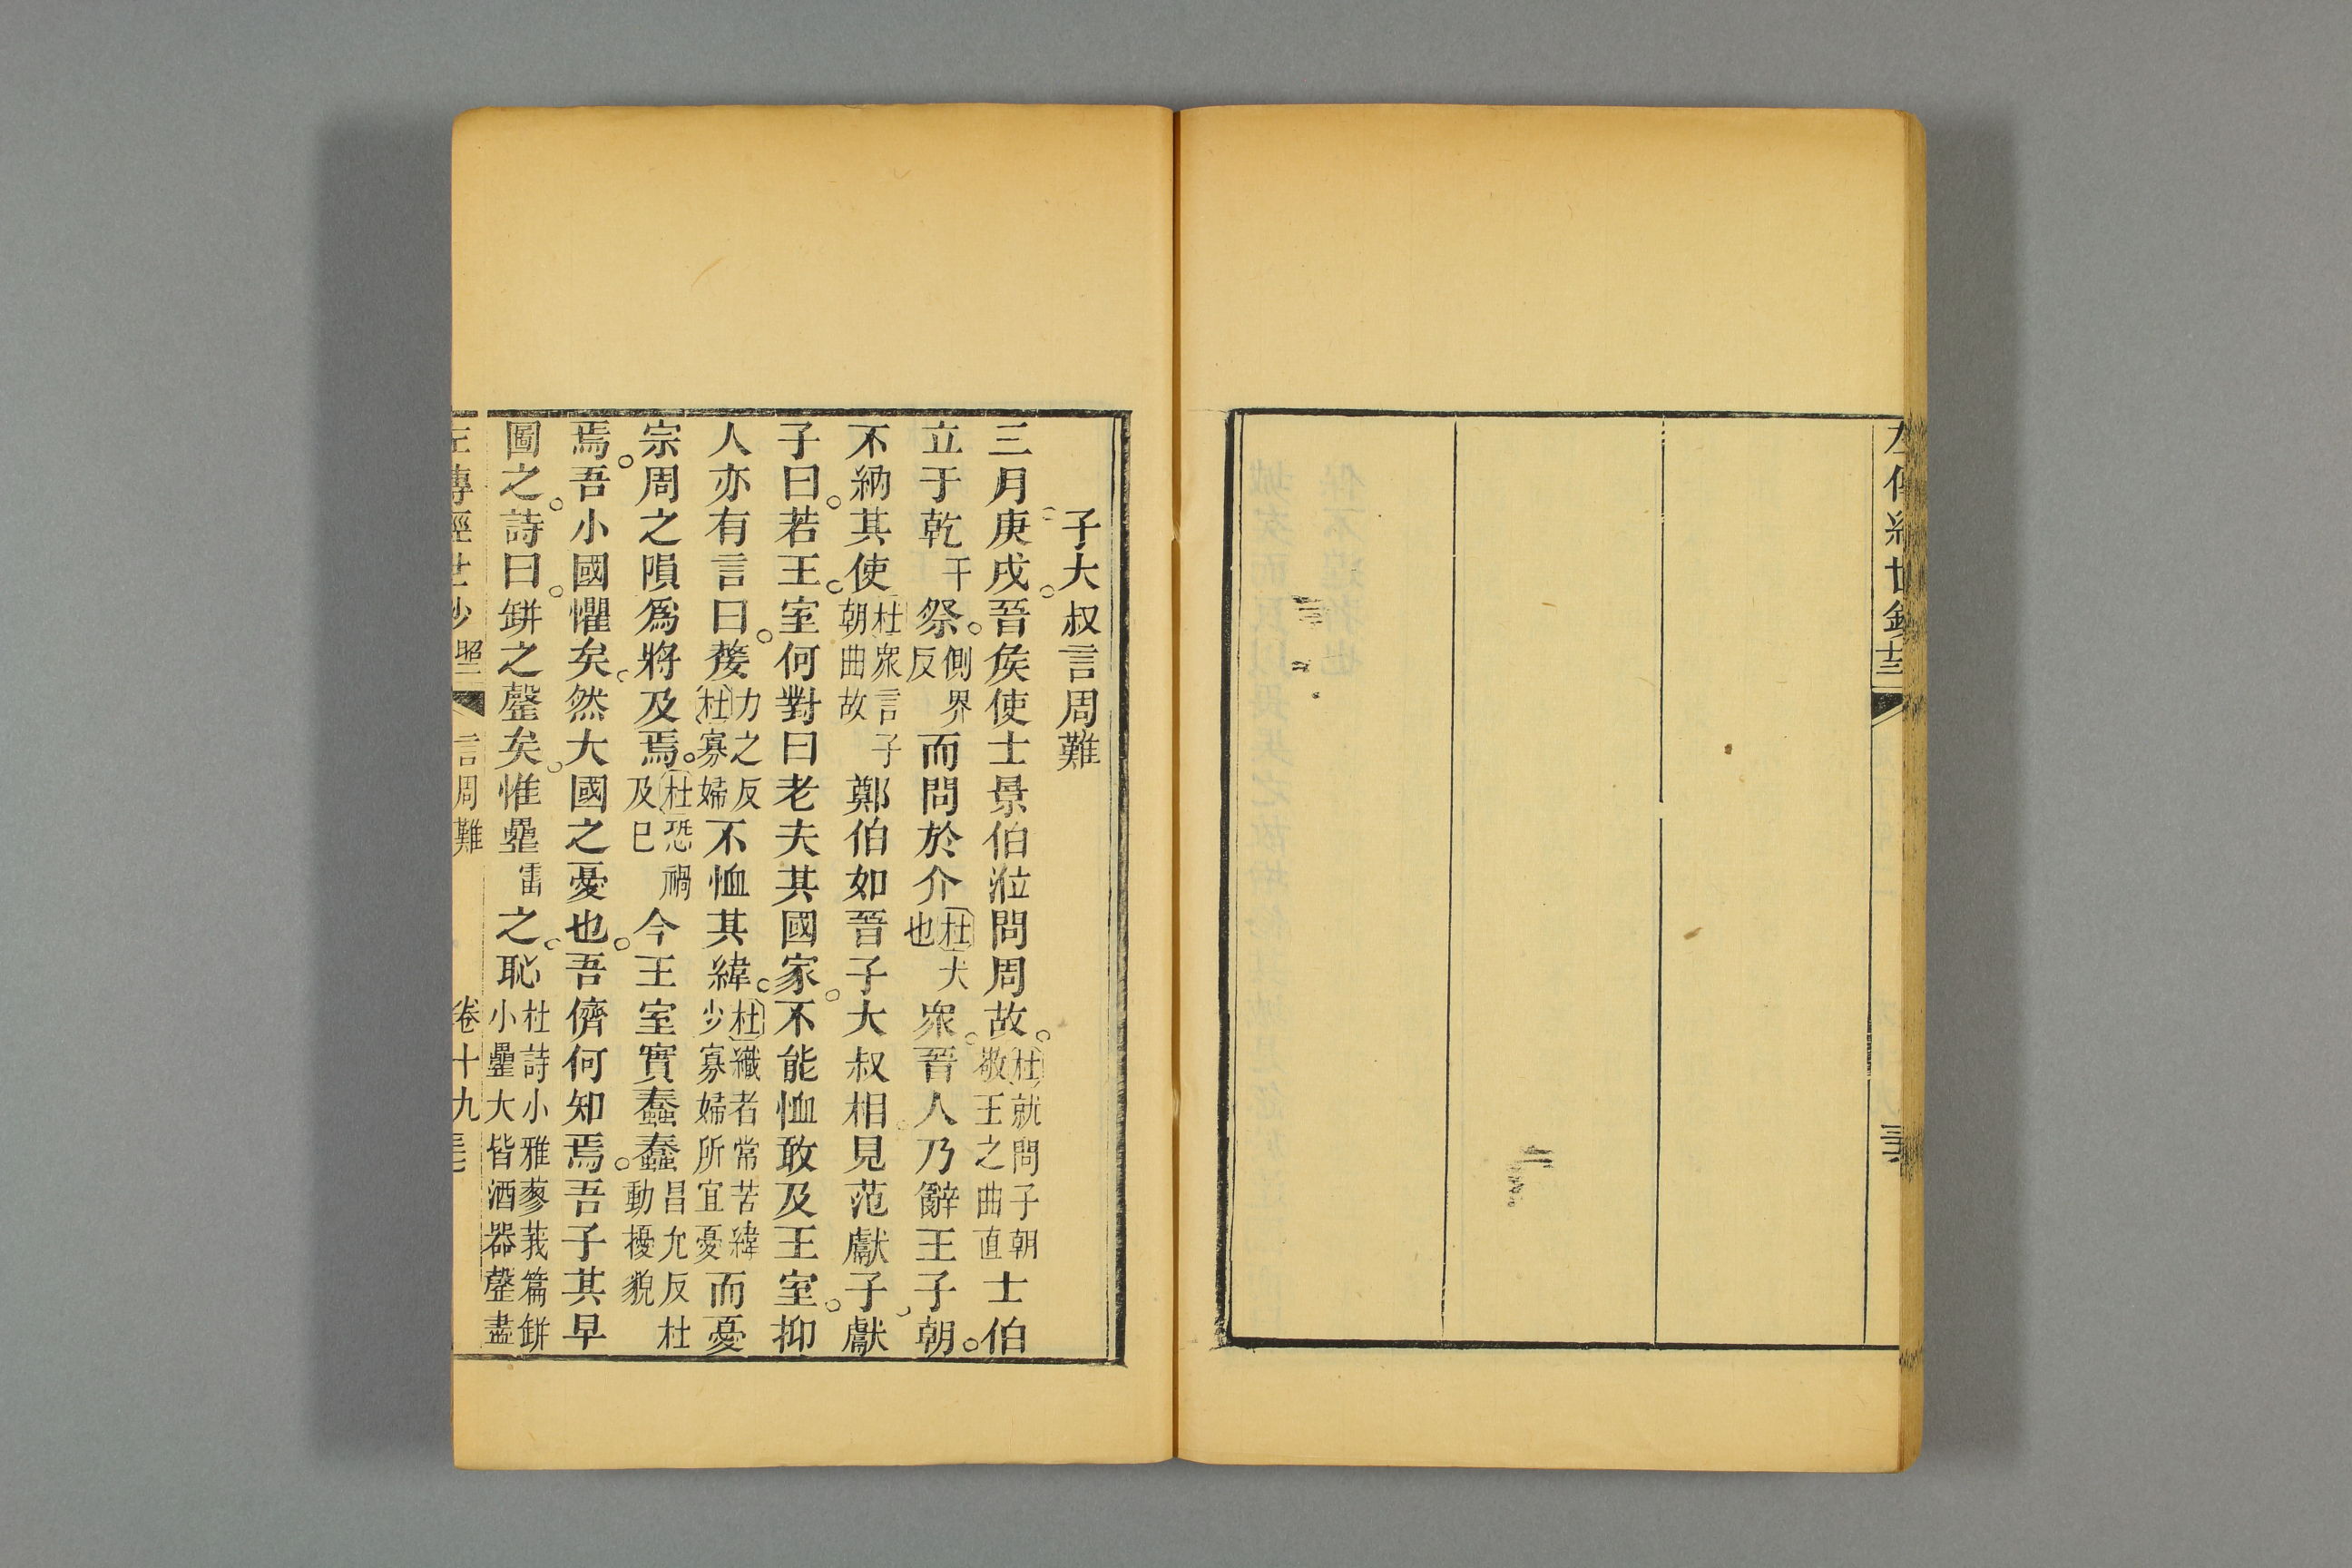 左傳經世鈔
子大叔言周難
三月庚戌。晉矦使士景伯涖問周故。杜就問子朝敬王之曲直士伯
立于乾干祭。側界反而問於介杜大也衆。晉人乃辭王子朝。
不納其使杜衆言子朝曲故鄭伯如晉子大叔相見范獻子獻
子曰。若王室何對曰老夫其國家。不能恤敢及王室。抑
人亦有言曰。嫠力之反杜寡婦不恤其緯。杜織者常苦緯少寡婦所宜憂而憂
宗周之隕爲將及焉。杜恐禍及巳今王室實蠢蠢昌允反杜動擾貌
焉。吾小國懼矣。然大國之憂也。吾儕何知焉。吾子其早
圖之。詩曰。缾之罄矣。惟罍雷之恥。杜詩小雅蓼莪篇缾小罍大皆酒器罄盡
左傳經世鈔 昭 言周難 卷十九